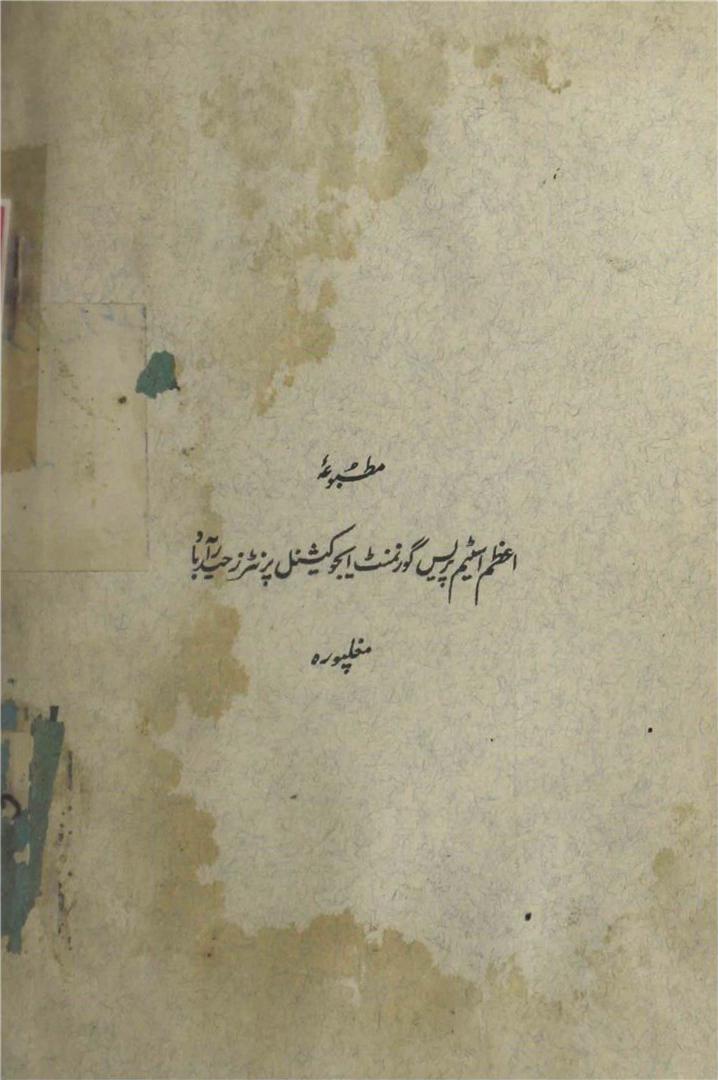 مطبوعۂ
اعظم اسٹیم پریس گورنمنٹ ایجوکیشنل پرنٹرز حیدرآباد
مغلپورہ